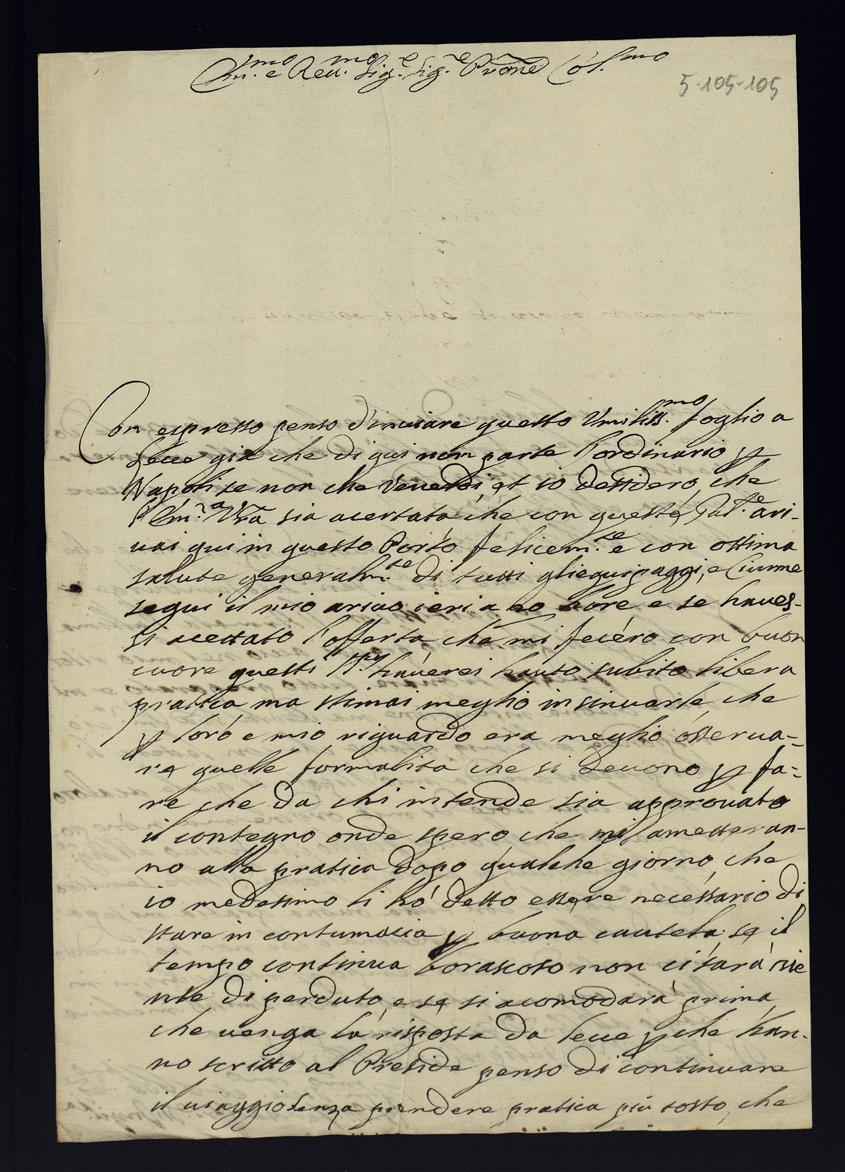 Em.mo e Rev.mo Sig.e Sig.e Prone Col.mo
5-105-105
Con espresso penso d'inviare questo Umiliss.mo foglio a
Lecce già che di qui non parte l'ordinario p
Napoli se non che Venerdi et io desidero che
l'Em.a Vra sia acertata che con queste Gal.te ari-
vai qui in questo Porto felicem.te e con ottima
salute generalm.te di tutti gliequipaggi, e Ciurme
segui il mio arivo ieri a 20 hore e se haves-
si acettato l'offerta che mi fecero con buon
cuore questi haverei hauto subito libera
pratica ma stimai meglio insinuarle che
p loro e mio riguardo era meglio osserva-
re quelle formalita che si devono p fa-
re che da chi intende sia approvato
il contegno onde spero che mi ametteran-
no alla pratica dopo qualche giorno che
io medesimo li hò detto essere necessario di
stare in contumacia p buona cautela se il
tempo continua borascoso non ci sarà nie
nte di perduto e se si acomodarà prima
che venga la risposta da Lecce p che han-
no scritto al Preside penso di continuare
il viaggio senza prendere pratica più tosto, che